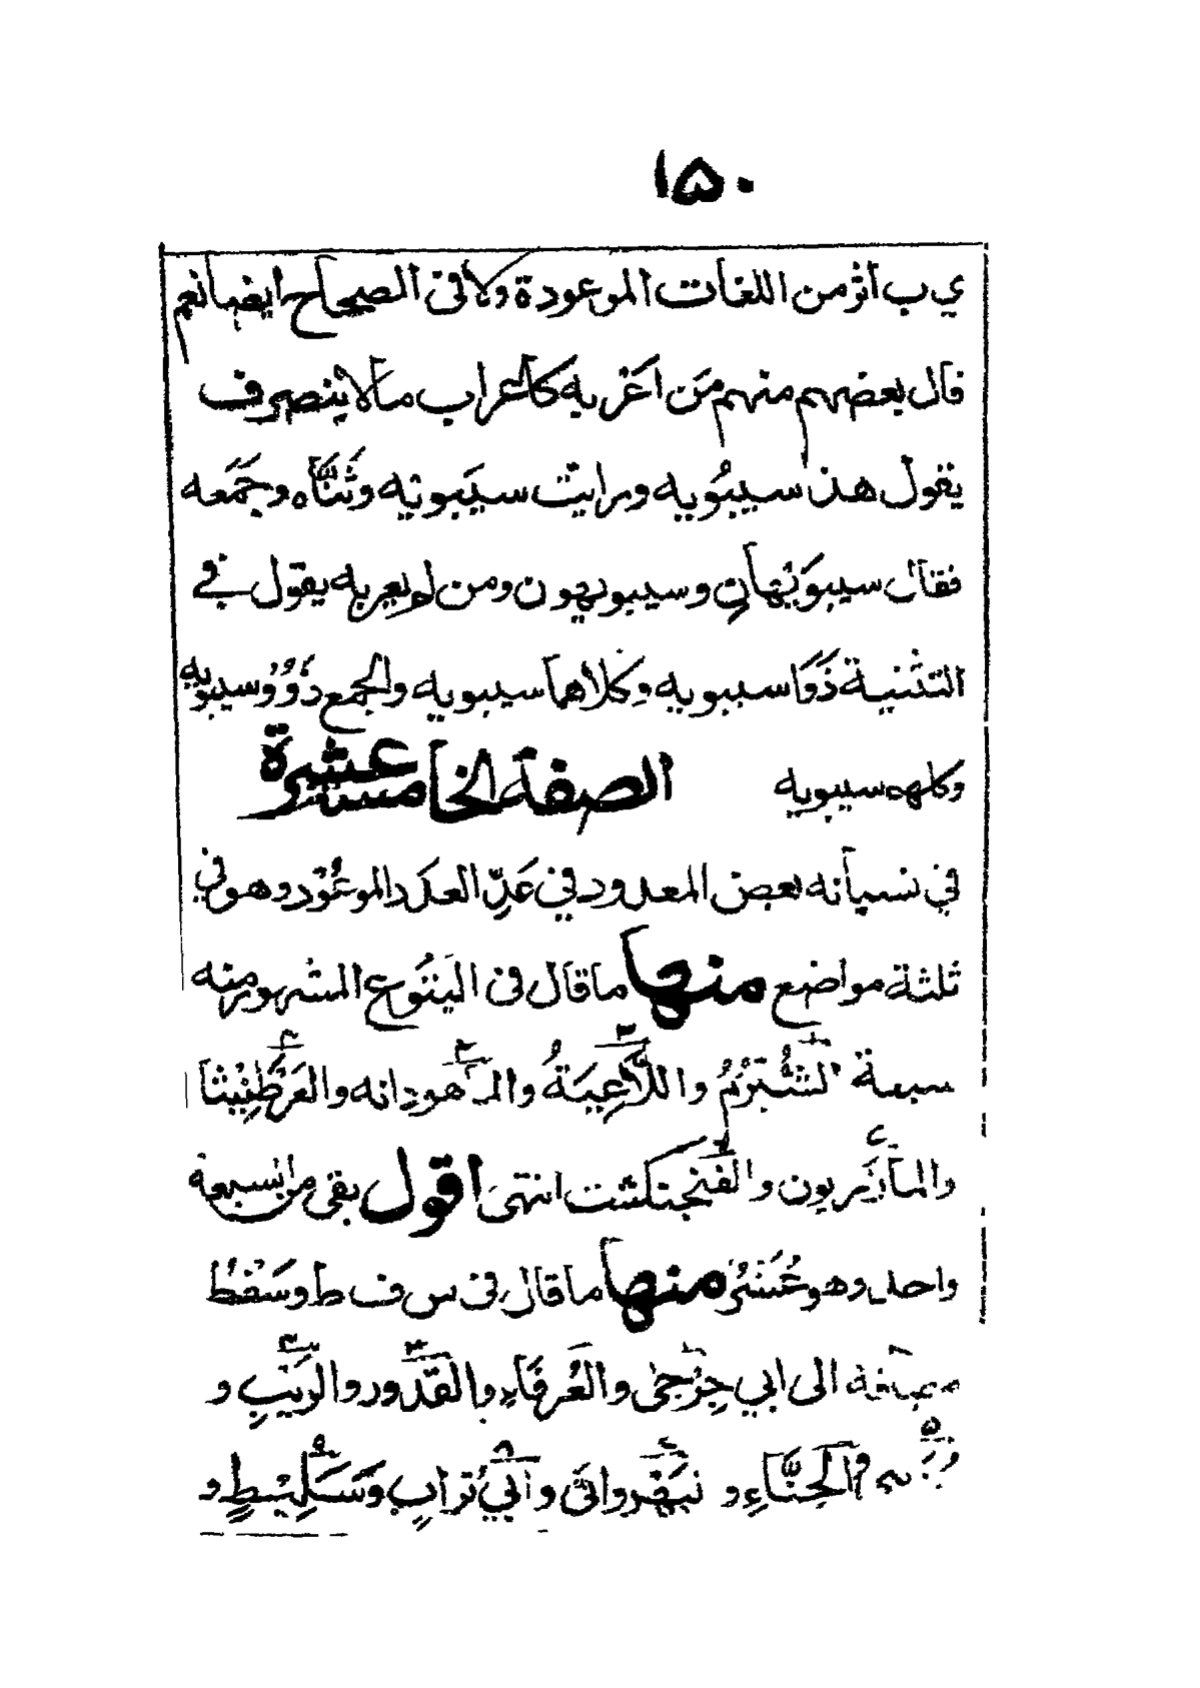 ١٥٠
ي ب اثر من اللغات الموعودة ولا فى الصحاح ايضا نعم
قال بعضهم منهم من اعربه كاعراب مالا ينصرف
يقول هذ سيبُويه ورايت سيَبويه وثَنَّاه وجَمَعه
فقال سيبوَيْهانِ وسيبويهون ومن لم يعربه يقول في
التثنية ذَوَا سيبويه وكلاهما سيبويه والجمع ذَوُو سيبويه
وكلهم سيبويه الصفة الخامسة عشرة
في نسيانه بعض المعدود في عَدِّ العدد الموعُوْد وهو في
ثلثة مواضع منها ما قال فى اليَتُوع المشهور منه
سبعة الشُبْرُمُ واللَّاعِيَةُ والماهودانه والعَرْطَنِيْثا
والمازَريون والفَنجنكشت انتهىَ اقول بقى من السبعة
واحد وهو عُشَرُ منها ما قال فى س ف ط وسَفْطُ
مضافة الى ابي جِرْجىٰ والعُرفَاءِ والقُدُور والزيْبِ و
والحِنَّاءِ و نَهْرواتٰى و ابِي تُرابٍ وسَلِيْطٍ و